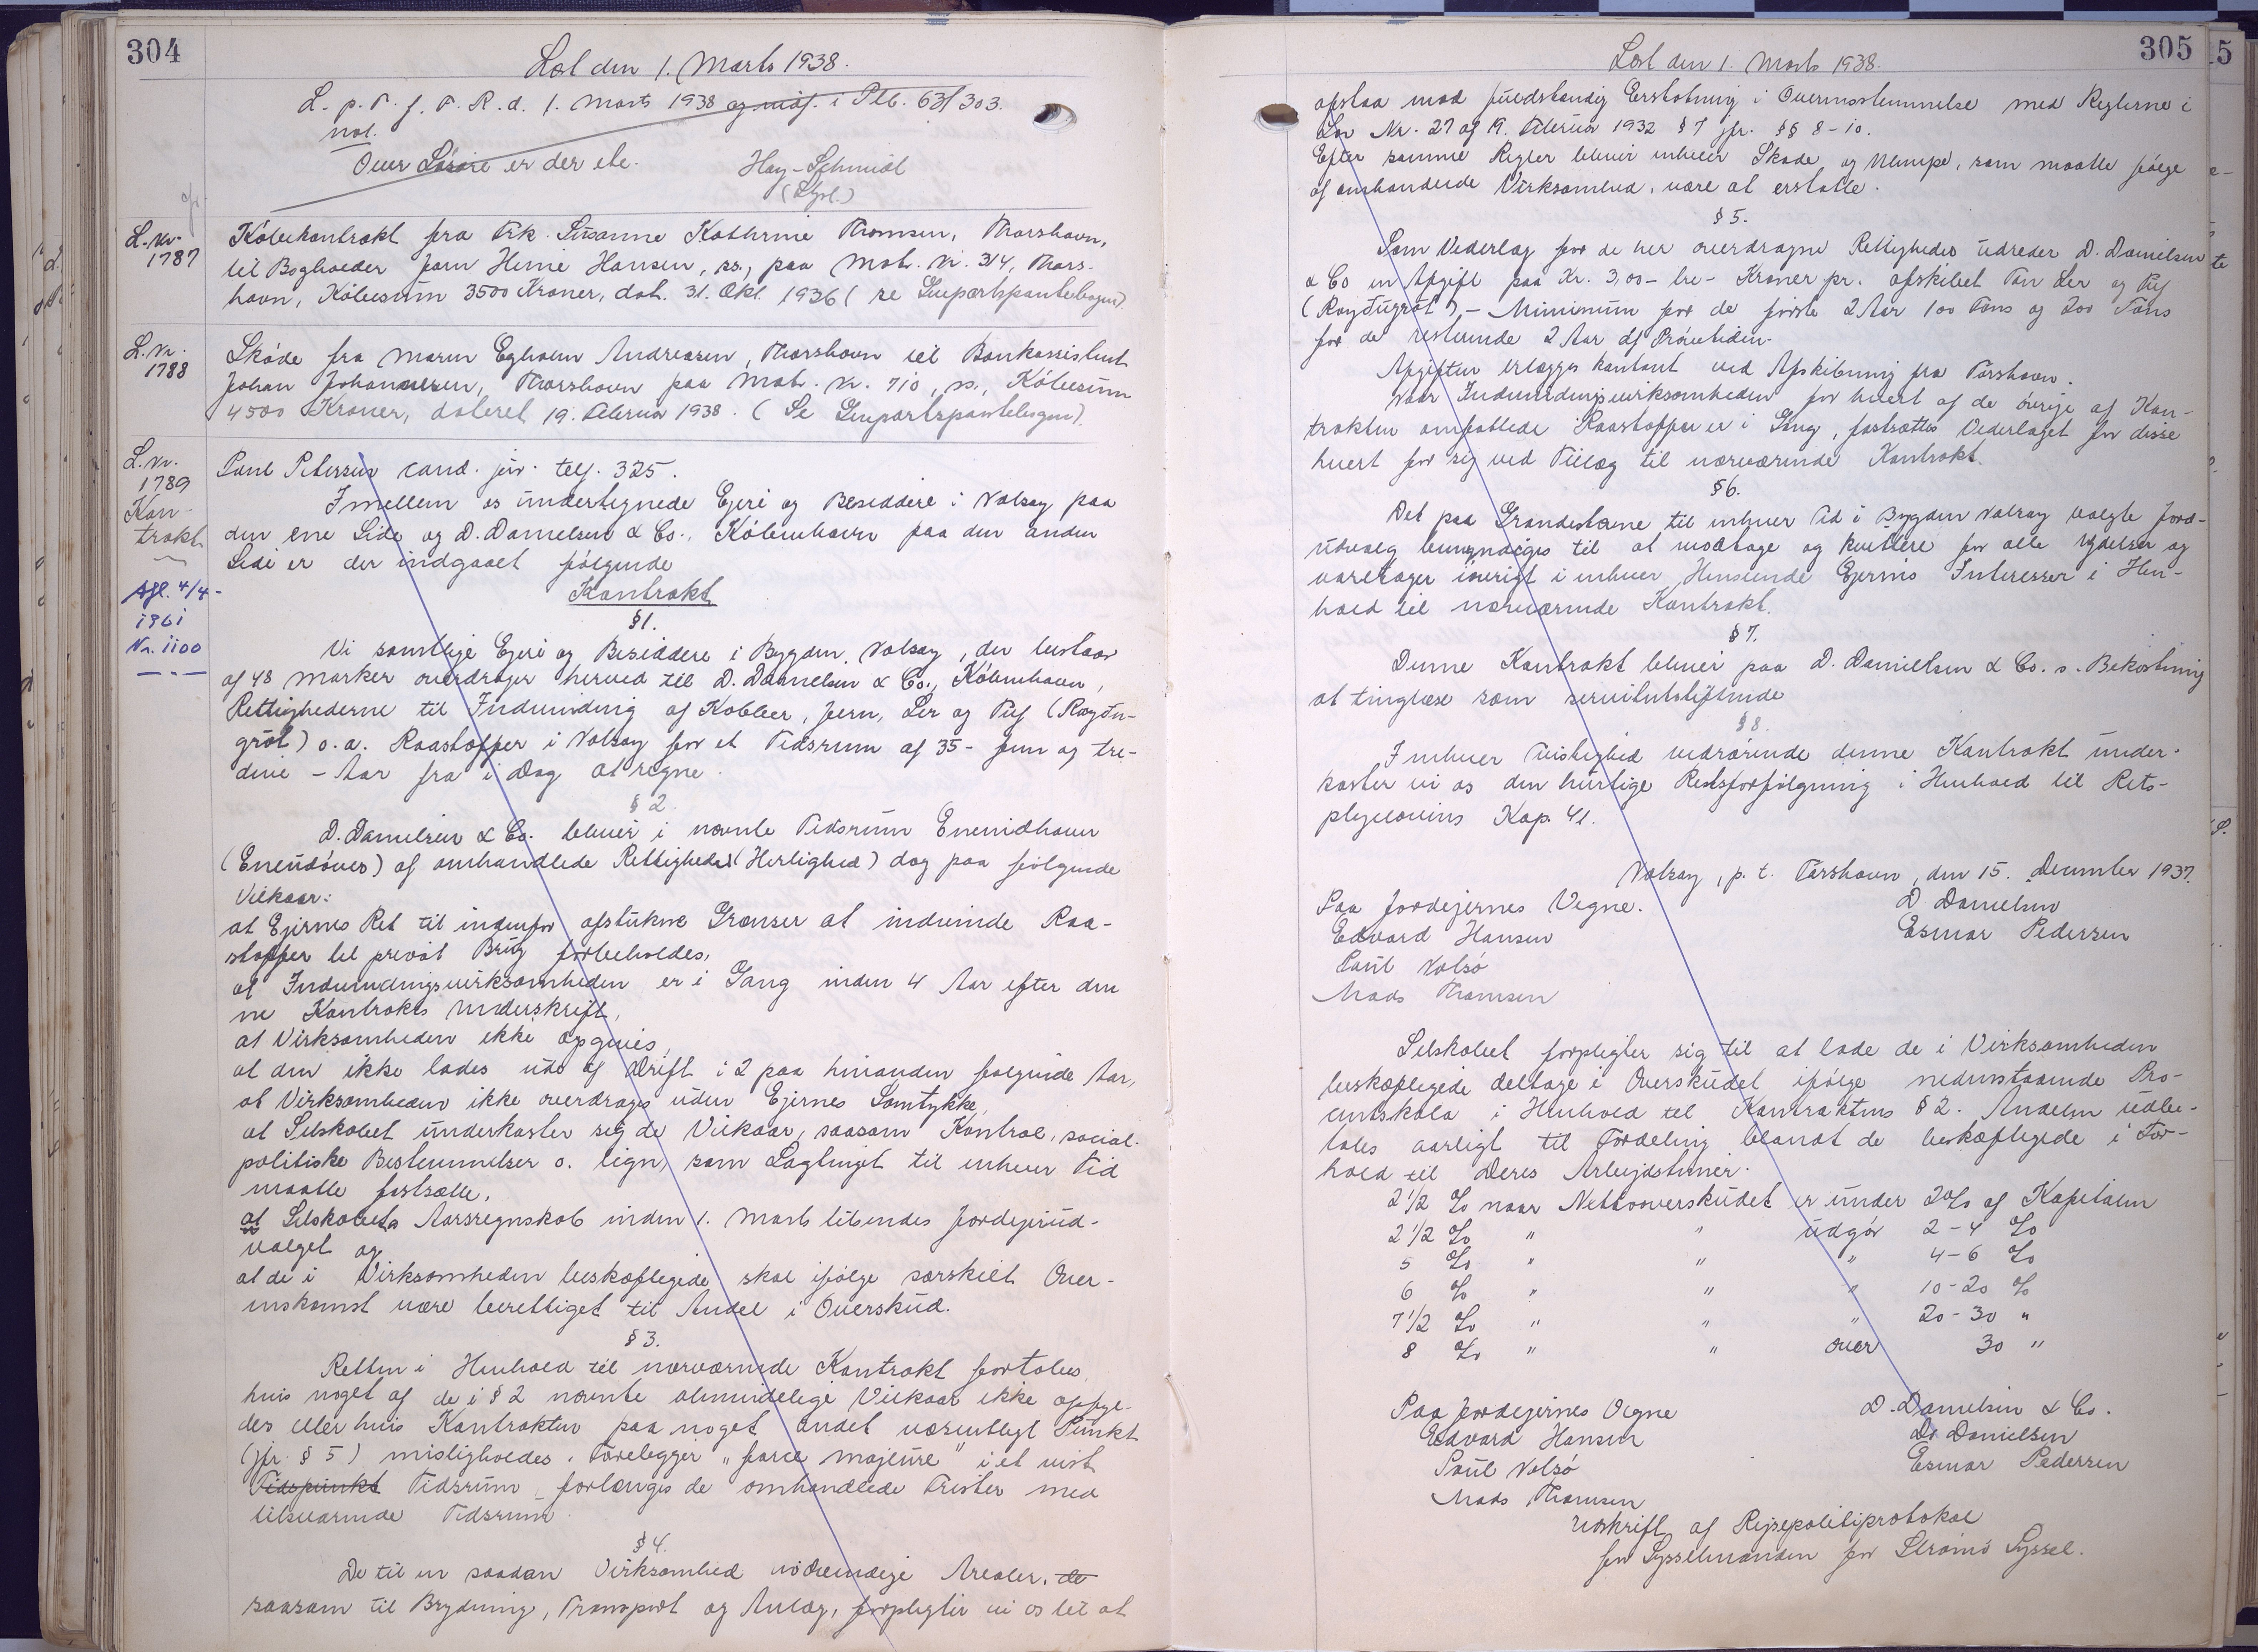 304
Læst den 1. Marts 1938.
L. p. T. f. F. R. d. 1. Marts 1938 og indf. i Ptb. 63/303.
not.
Over Lösöre er der ebe.
Hay-Schmidt
(Styrl.)
L. Nr. 1787
Köbekontrakt fra Frk. Susanne Kathrine Thomsen, Thorshavn,
til Bogholder Jorn Heine Hansen, ss., paa Matr. Nr. 314, Thors-
havn, Köbesum 3500 Kroner, dat. 31. Okt. 1936 (se Genpartspantebogen).
L. Nr. 1788
Sköde fra Maren Egholm Andreasen, Thorshavn til Bankassistent
Johan Johannesen, Thorshavn paa Matr. Nr. 710, ss., Köbesum
4500 Kroner, dateret 19. Februar 1938. (Se Genpartspantebogen).
L. Nr. 1789
Kon-
trakt
Afl. 4/4-
1961
Nr. 1100
Poul Petersen cand. jur. telf. 325.
Imellem os undertegnede Ejere og Besiddere i Nolsoy paa
den ene Side og D. Danielsen & Co., Köbenhavn paa den anden
Side er der indgaaet fölgende
Kontrakt
§1.
Vi samtlige Ejere og Besiddere i Bygden Nolsoy, der bestaar
af 48 Marker overdrager herved til D. Danielsen & Co., Köbenhavn,
Rettighederne til Indvinding af Kobber, Jern, Ler og Tuf (Royðu-
grót) o.a. Raastoffer i Nolsoy for et Tidsrum af 35 - fem og tre-
dive - Aar fra i Dag at regne.
§ 2.
D. Danielsen & Co. bliver i nævnte Tidsrum Eneindhaver
(Eneudöver) af omhandlede Rettigheder (Herlighed) dog paa fölgende
Vilkaar:
at Ejernes Ret til indenfor afstukne Grænser at indvinde Raa-
stoffer til privat Brug forbeholdes,
at Indvindingsvirksomheden er i Gang inden 4 Aar efter den
ne Kontrakts Underskrift,
at Virksomheden ikke opgives,
at den ikke lades ude af Drift i 2 paa hinanden fölgende Aar,
at Virksomheden ikke overdrages uden Ejernes Samtykke,
at Selskabet underkaster sig de Vilkaar, saasom Kontrol, social-
politiske Bestemmelser o. lign, som Lagtinget til enhver Tid
maatte fastsætte,
at Selskabets Aarsregnskab inden 1. Marts tilsendes Jordejerud-
valget og
at de i Virksomheden beskæftigede skal ifölge særskilt Over-
enskomst være berettiget til Andel i Overskud.
§ 3.
Retten i Henhold til nærværende Kontrakt fortabes,
hvis noget af de i § 2 nævnte almindelige Vilkaar ikke opfyl-
des eller hvis Kontrakten paa noget andet væsentligt Punkt
(jfr. § 5) misligholdes. Foreligger "force majeure" i et vist
Tidspunkt Tidsrum forlænges de omhandlede Frister med
tilsvarende Tidsrum.
§ 4.
De til en saadan Virksomhed nödvendige Arealer, de
saasom til Brydning, Transport og Anlæg, forpligter vi os til at
305
Læst den 1. Marts 1938.
afstaa mod fuldstændig Erstatning i Overensstemmelse med Reglerne i
Lov Nr. 27 af 19. Februar 1932 § 7 jfr. §§ 8-10.
Efter samme Regler bliver enhver Skade og Ulempe, som maatte fölge
af omhandlede Virksomhed, være at erstatte.
§ 5.
Som Vederlag for de her overdragne Rettigheder udreder D. Danielsen
& Co en Afgift paa Kr. 3,00 - tre - Kroner pr. afskibet Ton Ler og Tuf
(Royðugrót), - Minimum for de förste 2 Aar 100 Tons og 200 Tons
for de resterende 2 Aar af Prövetiden.
Afgiften erlægges kontant ved Afskibning fra Tórshavn.
Naar Indvindingsvirksomheden for hvert af de övrige af Kon-
trakten omfattede Raastoffer er i Gang, fastsættes Vederlaget for disse
hvert for sig ved Tillæg til nærværende Kontrakt.
§6.
Det paa Grandestevne til enhver Tid i Bygden Nolsoy valgte Jord-
udvalg bemyndiges til at modtage og kvittere for alle Ydelser og
varetager iövrigt i enhver Henseende Ejernes Interesser i Hen-
hold til nærværende Kontrakt.
§ 7.
Denne Kontrakt bliver paa D. Danielsen & Co. s. Bekostning
at tinglæse som servitutstiftende
§ 8.
I enhver Tvistighed vedrörende denne Kontrakt under-
kaster vi os den hurtige Retsforfölgning i Henhold til Rets-
plejelovens Kap. 41.
Nolsoy, p. t. Tórshavn, den 15. December 1937.
Paa Jordejernes Vegne.
D Danielsen
Edvard Hansen
Esmar Pedersen
Poul Nolsö
Mads Thomsen
Selskabet forpligter sig til at lade de i Virksomheden
beskæftigede deltage i Overskudet ifölge nedenstaaende Pro-
centskala i Henhold til Kontraktens § 2. Andelen udbe-
tales aarligt til Fordeling blandt de beskæftigede i For-
hold til Deres Arbejdstimer.
2 1/2 % naar Nettooverskudet er under 2% af Kapitalen
2 1/2 % " " udgör 2-4 %
5 % " " " 4-6 %
6 % " " " 10-20 %
7 1/2 % " " " 20-30 "
8 % " " over 30 "
Paa Jordejernes Vegne
D. Danielsen & Co.
Edvard Hansen
D. Danielsen
Poul Nolsö
Esmar Pedersen
Mads Thomsen
Udskrift af Rejsepolitiprotokol
for Sysselmanden for Strömö Syssel.